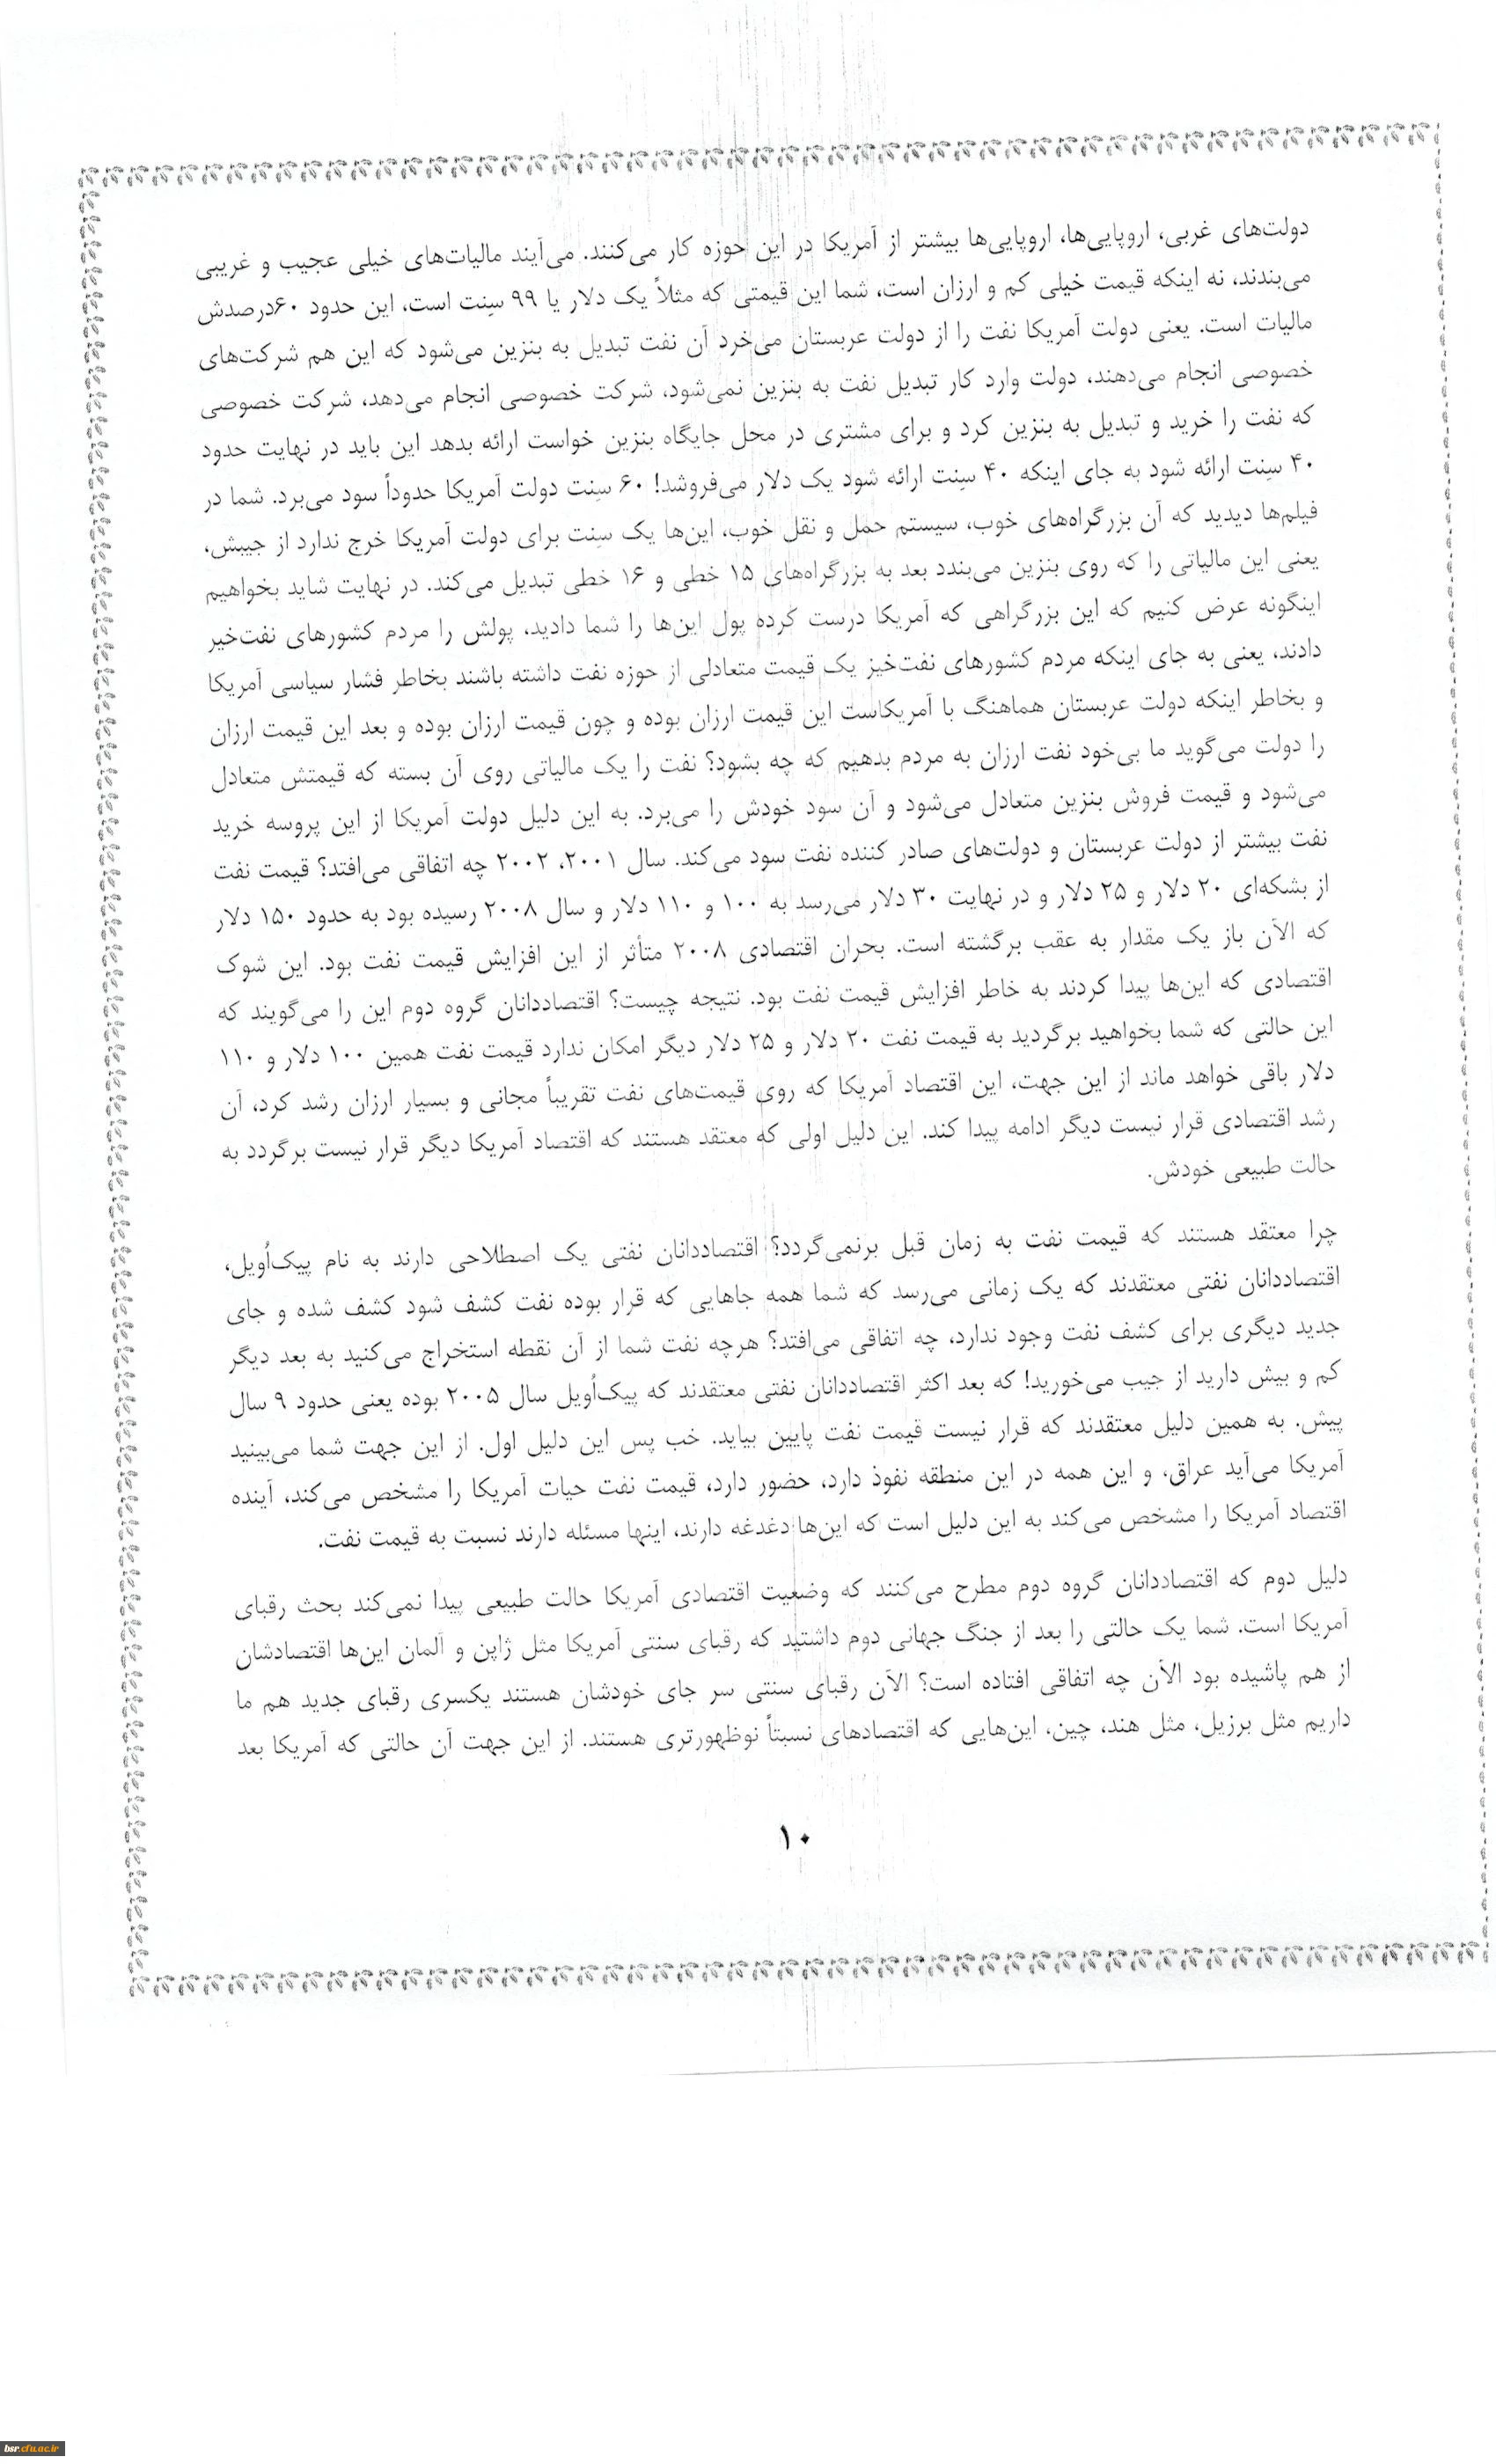 دولت‌های غربی، اروپایی‌ها، اروپایی‌ها بیشتر از آمریکا در این حوزه کار می‌کنند. می‌آیند مالیات‌های خیلی عجیب و غریبی
می‌بندند، نه اینکه قیمت خیلی کم و ارزان است، شما این قیمتی که مثلاً یک دلار یا ۹۹ سِنت است، این حدود ۶۰درصدش
مالیات است. یعنی دولت آمریکا نفت را از دولت عربستان می‌خرد آن نفت تبدیل به بنزین می‌شود که این هم شرکت‌های
خصوصی انجام می‌دهند، دولت وارد کار تبدیل نفت به بنزین نمی‌شود، شرکت خصوصی انجام می‌دهد، شرکت خصوصی
که نفت را خرید و تبدیل به بنزین کرد و برای مشتری در محل جایگاه بنزین خواست ارائه بدهد این باید در نهایت حدود
۴۰ سِنت ارائه شود به جای اینکه ۴۰ سِنت ارائه شود یک دلار می‌فروشد! ۶۰ سِنت دولت آمریکا حدوداً سود می‌برد. شما در
فیلم‌ها دیدید که آن بزرگراه‌های خوب، سیستم حمل و نقل خوب، این‌ها یک سِنت برای دولت آمریکا خرج ندارد از جیبش،
یعنی این مالیاتی را که روی بنزین می‌بندد بعد به بزرگراه‌های ۱۵ خطی و ۱۶ خطی تبدیل می‌کند. در نهایت شاید بخواهیم
اینگونه عرض کنیم که این بزرگراهی که آمریکا درست کرده پول این‌ها را شما دادید، پولش را مردم کشورهای نفت‌خیر
دادند، یعنی به جای اینکه مردم کشورهای نفت‌خیز یک قیمت متعادلی از حوزه نفت داشته باشند بخاطر فشار سیاسی آمریکا
و بخاطر اینکه دولت عربستان هماهنگ با آمریکاست این قیمت ارزان بوده و چون قیمت ارزان بوده و بعد این قیمت ارزان
را دولت می‌گوید ما بی‌خود نفت ارزان به مردم بدهیم که چه بشود؟ نفت را یک مالیاتی روی آن بسته که قیمتش متعادل
می‌شود و قیمت فروش بنزین متعادل می‌شود و آن سود خودش را می‌برد. به این دلیل دولت آمریکا از این پروسه خرید
نفت بیشتر از دولت عربستان و دولت‌های صادر کننده نفت سود می‌کند. سال ۲۰۰۱، ۲۰۰۲ چه اتفاقی می‌افتد؟ قیمت نفت
از بشکه‌ای ۲۰ دلار و ۲۵ دلار و در نهایت ۳۰ دلار می‌رسد به ۱۰۰ و ۱۱۰ دلار و سال ۲۰۰۸ رسیده بود به حدود ۱۵۰ دلار
که الآن باز یک مقدار به عقب برگشته است. بحران اقتصادی ۲۰۰۸ متأثر از این افزایش قیمت نفت بود. این شوک
اقتصادی که این‌ها پیدا کردند به خاطر افزایش قیمت نفت بود. نتیجه چیست؟ اقتصاددانان گروه دوم این را می‌گویند که
این حالتی که شما بخواهید برگردید به قیمت نفت ۲۰ دلار و ۲۵ دلار دیگر امکان ندارد قیمت نفت همین ۱۰۰ دلار و ۱۱۰
دلار باقی خواهد ماند از این جهت، این اقتصاد آمریکا که روی قیمت‌های نفت تقریباً مجانی و بسیار ارزان رشد کرد، آن
رشد اقتصادی قرار نیست دیگر ادامه پیدا کند. این دلیل اولی که معتقد هستند که اقتصاد آمریکا دیگر قرار نیست برگردد به
حالت طبیعی خودش.
چرا معتقد هستند که قیمت نفت به زمان قبل برنمی‌گردد؟ اقتصاددانان نفتی یک اصطلاحی دارند به نام پیک‌اُویل،
اقتصاددانان نفتی معتقدند که یک زمانی می‌رسد که شما همه جاهایی که قرار بوده نفت کشف شود کشف شده و جای
جدید دیگری برای کشف نفت وجود ندارد، چه اتفاقی می‌افتد؟ هرچه نفت شما از آن نقطه استخراج می‌کنید به بعد دیگر
کم و بیش دارید از جیب می‌خورید! که بعد اکثر اقتصاددانان نفتی معتقدند که پیک‌اُویل سال ۲۰۰۵ بوده یعنی حدود ۹ سال
پیش. به همین دلیل معتقدند که قرار نیست قیمت نفت پایین بیاید. خب پس این دلیل اول. از این جهت شما می‌بینید
آمریکا می‌آید عراق، و این همه در این منطقه نفوذ دارد، حضور دارد، قیمت نفت حیات آمریکا را مشخص می‌کند، آینده
اقتصاد آمریکا را مشخص می‌کند به این دلیل است که این‌ها دغدغه دارند، اینها مسئله دارند نسبت به قیمت نفت.
دلیل دوم که اقتصاددانان گروه دوم مطرح می‌کنند که وضعیت اقتصادی آمریکا حالت طبیعی پیدا نمی‌کند بحث رقبای
آمریکا است. شما یک حالتی را بعد از جنگ جهانی دوم داشتید که رقبای سنتی آمریکا مثل ژاپن و آلمان این‌ها اقتصادشان
از هم پاشیده بود الآن چه اتفاقی افتاده است؟ الآن رقبای سنتی سر جای خودشان هستند یکسری رقبای جدید هم ما
داریم مثل برزیل، مثل هند، چین، این‌هایی که اقتصادهای نسبتاً نوظهورتری هستند. از این جهت آن حالتی که آمریکا بعد
۱۰
bsr.cfu.ac.ir